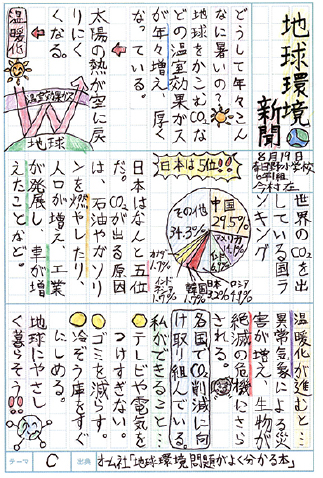 地球環境
新聞
8月19日
春日野小学校
どうして年々こん
なに暑いの?
地球をかこむCO₂な
どの温室効果ガス
が年々増え、厚く
なっている。
太陽の熱が空に戻
りにく
くなる。
温暖化
温室効果ガス
地球
世界のCO₂を出
している国ラ
ンキング
日本は5位!!
中国
29.5%
アメリカ
ロシア
日本
韓国
1.7%
その他
34.3%
日本はなんと五位
だ。CO₂が出る原因
は、石油やガソリ
ンを燃やしたり、
人口が増え、工業
が発展し、車が増
えたことなど。
温暖化が進むと…
異常気象による災
害が増え、生物が
絶滅の危機にさら
される。
各国でCO₂削減に向
け取り組んでいる。
私ができること…
テレビや電気を
つけすぎない。
ゴミを減らす。
冷ぞう庫をすぐ
にしめる。
地球にやさし
く暮らそう!!
テーマ
C
出典
オーム社「地球環境問題がよく分かる本」